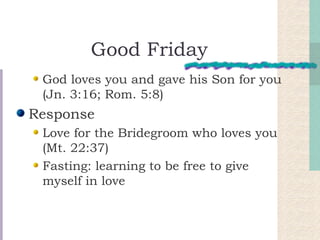 Good Friday
God loves you and gave his Son for you
(Jn. 3:16; Rom. 5:8)
Response
Love for the Bridegroom who loves you
(Mt. 22:37)
Fasting: learning to be free to give
myself in love